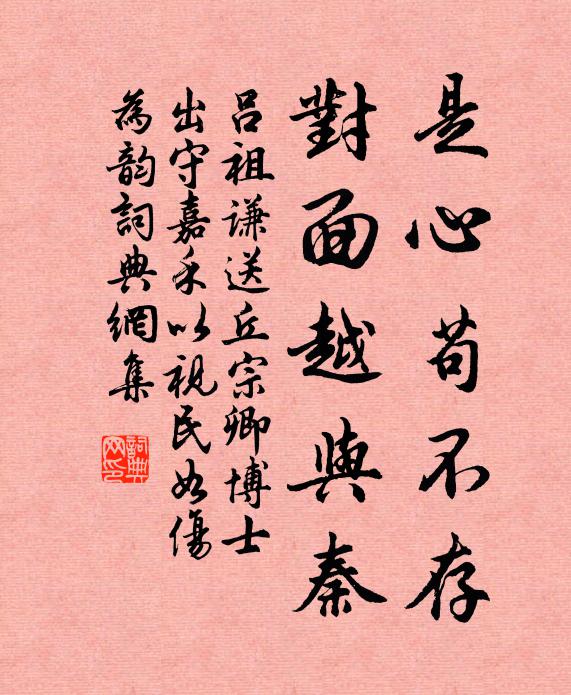 是心苟不存
對面越與秦
呂祖謙送丘宗卿博士
出守嘉禾以視民如傷
為韵詞典網集
詞典
网印